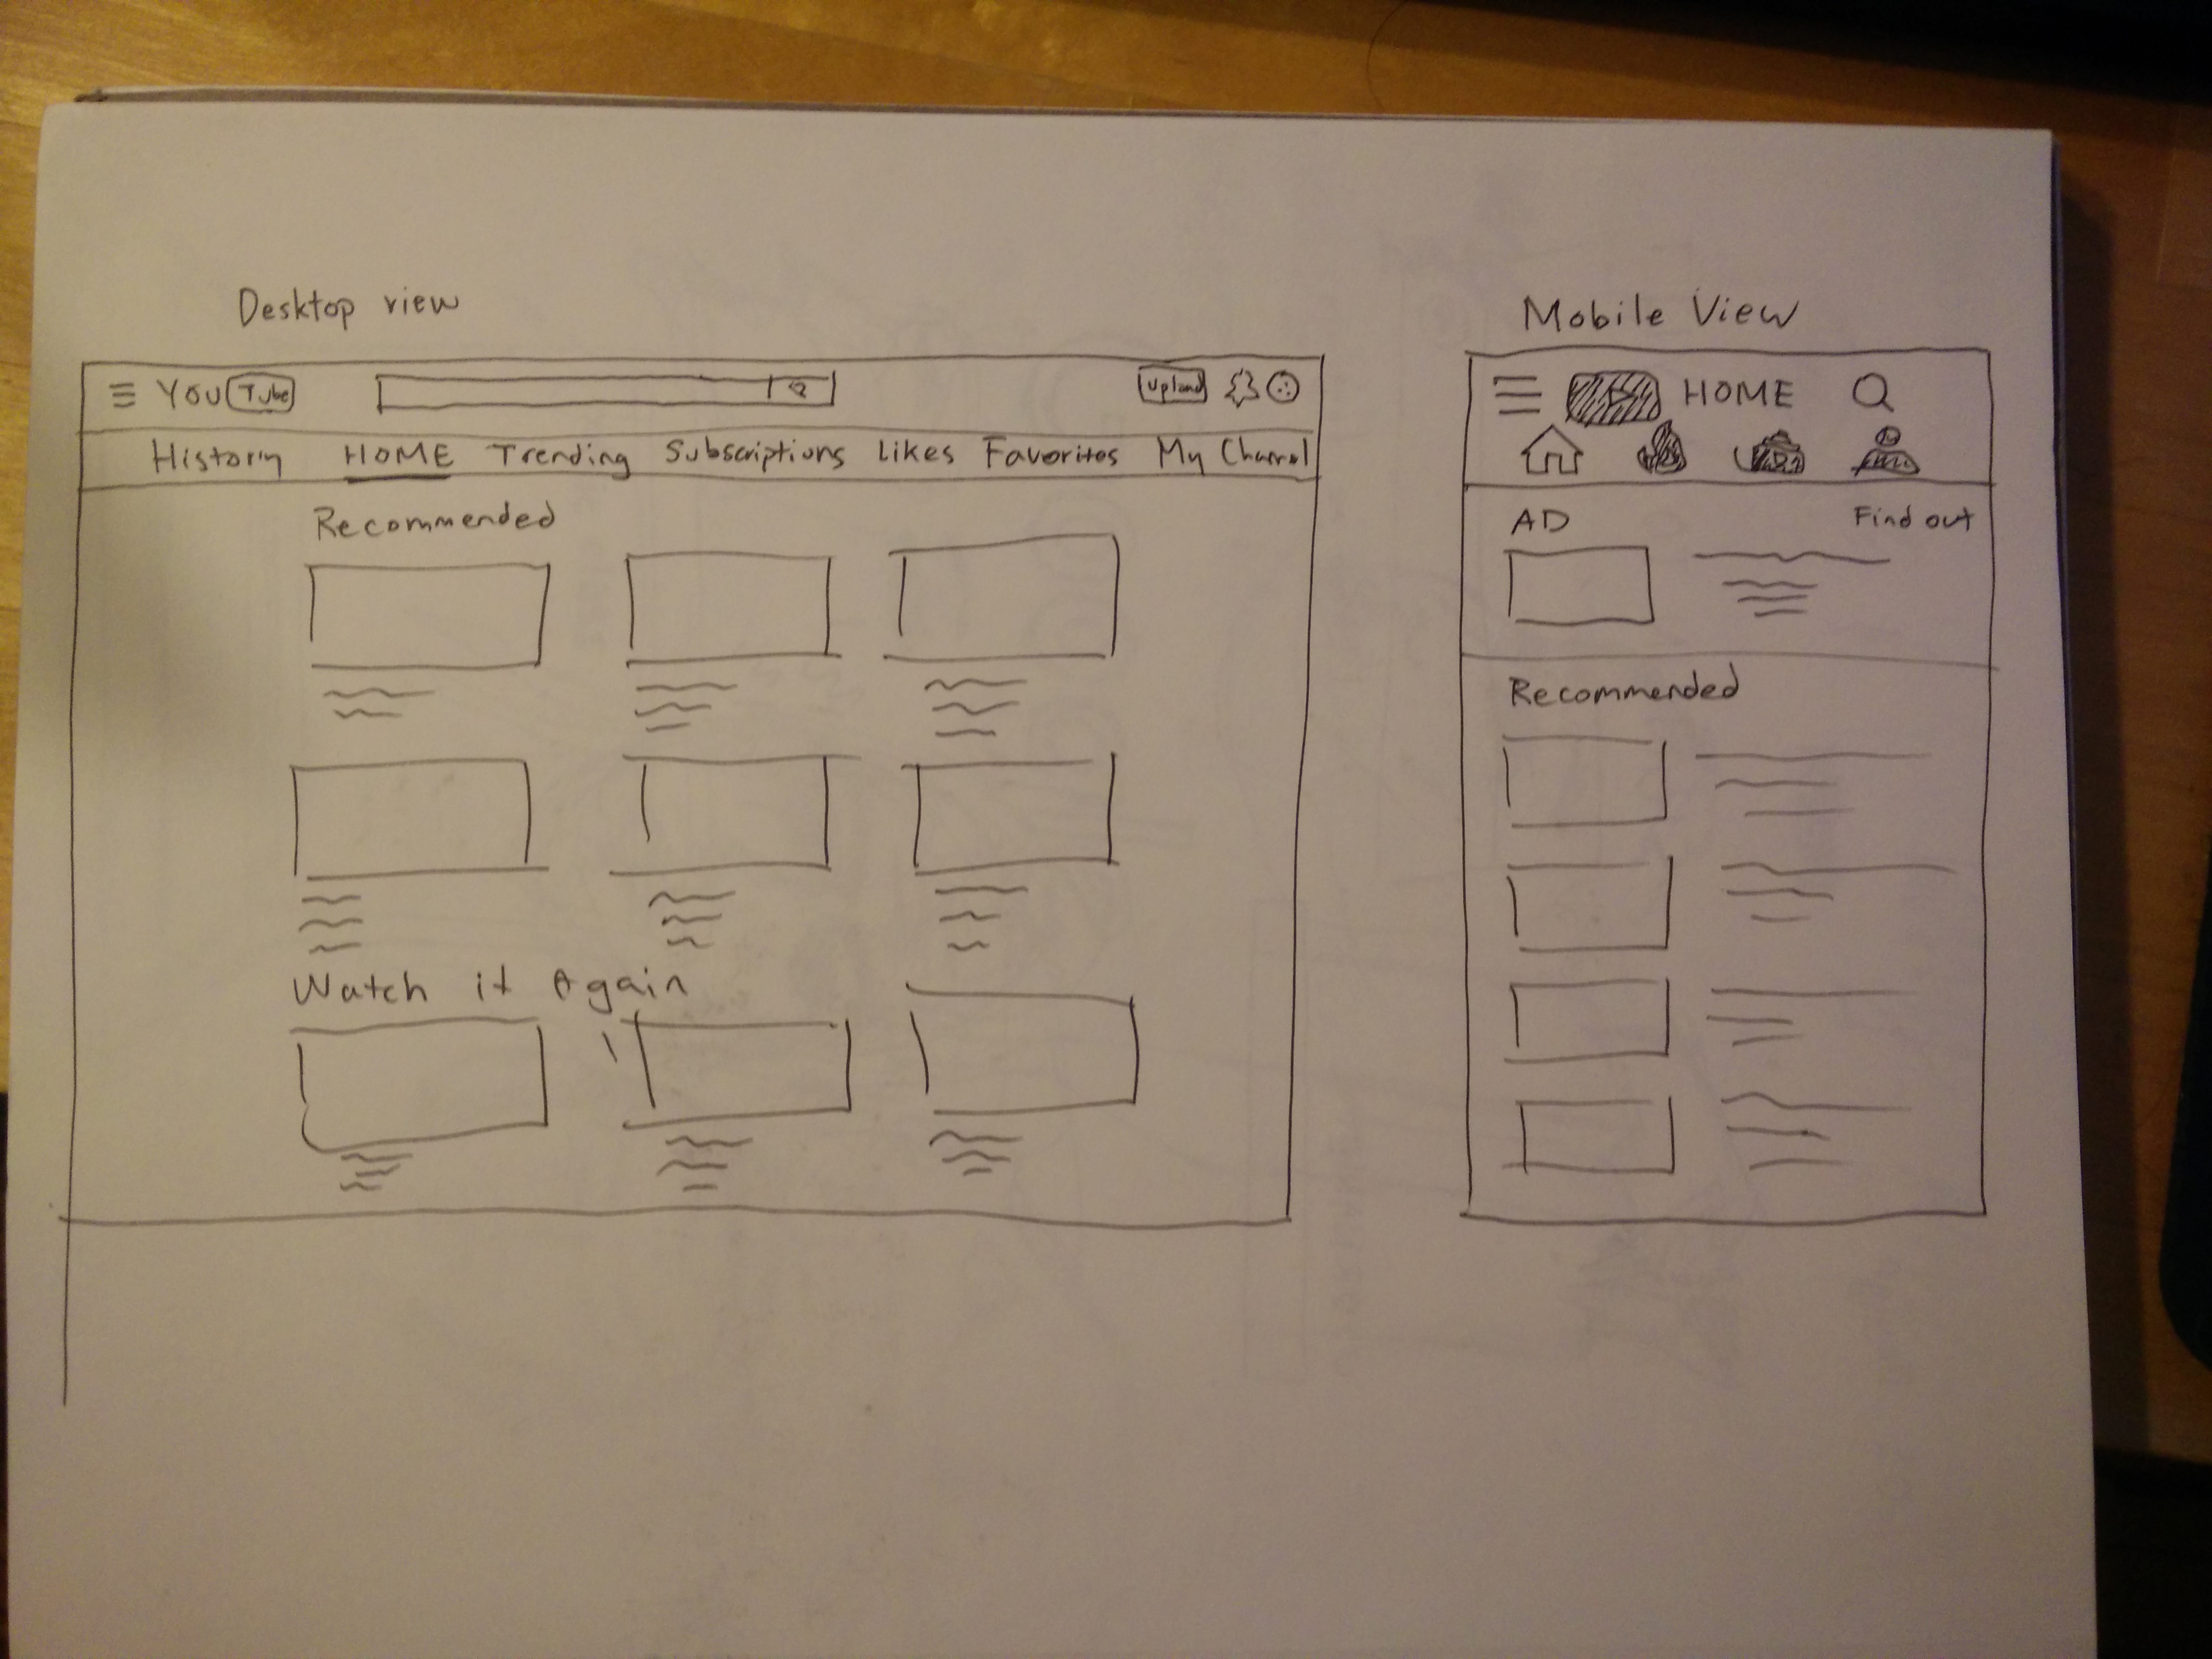 Desktop view
YOU Tube
Upload
History HOME Trending Subscriptions Likes Favorites My Channel
Recommended
Watch it Again
Mobile View
HOME
AD Find out
Recommended